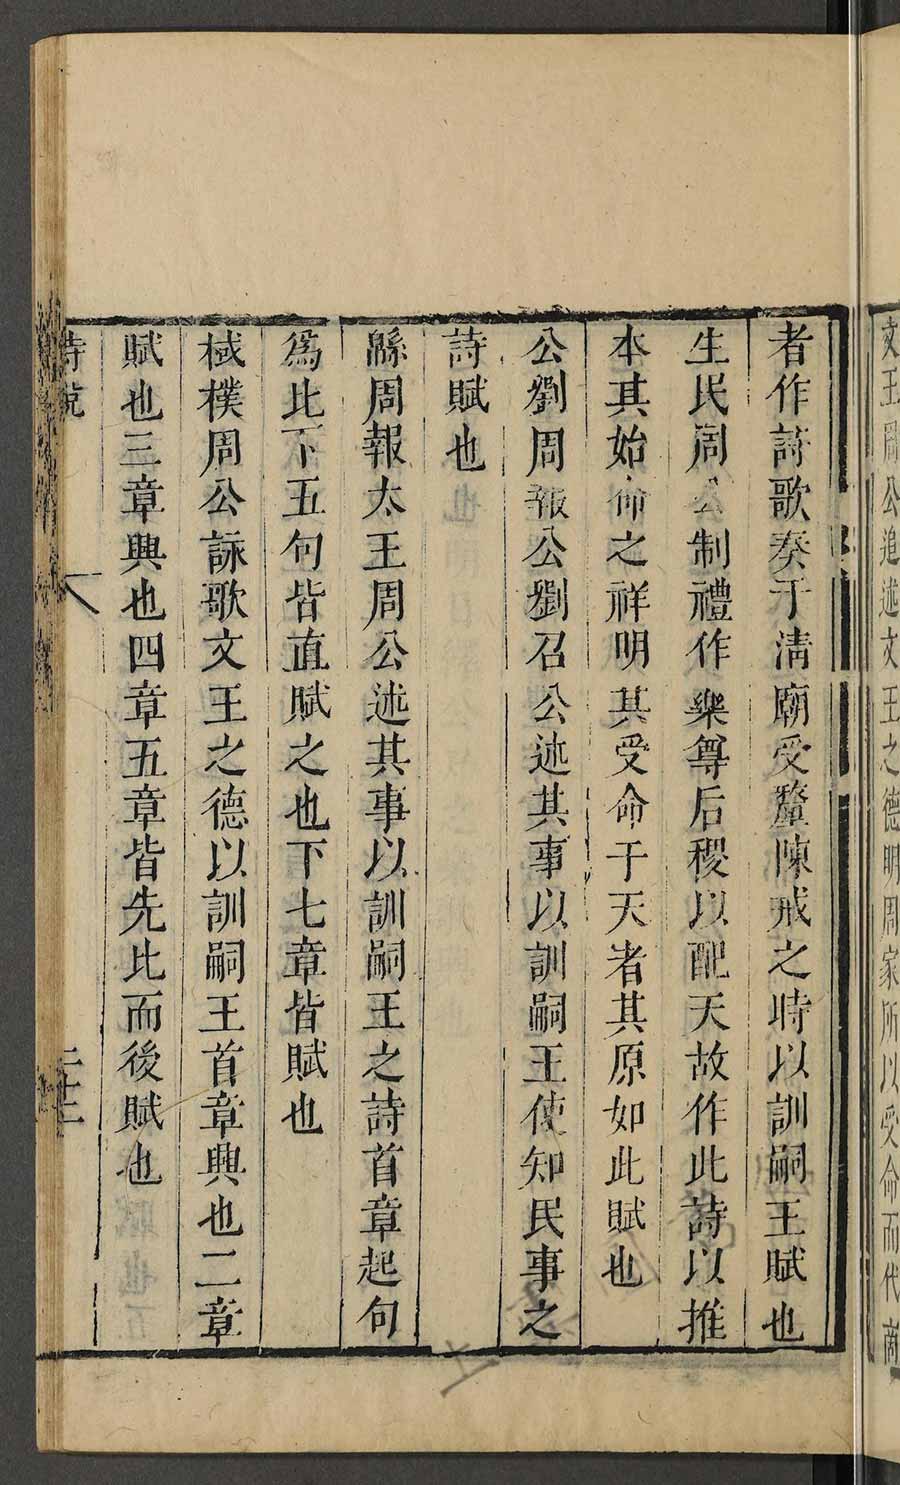 文王周公追述文王之德明周家所以受命而代商
者作詩歌奏于淸廟受釐陳戒之時以訓嗣王賦也
生民周公制禮作樂尊后稷以配天故作此詩以推
本其始命之祥明其受命于天者其原如此賦也
公劉周報公劉召公述其事以訓嗣王使知民事之
詩賦也
緜周報太王周公述其事以訓嗣王之詩首章起句
爲比下五句皆直賦之也下七章皆賦也
棫樸周公詠歌文王之德以訓嗣王首章興也二章
賦也三章興也四章五章皆先比而後賦也
詩說 二十二